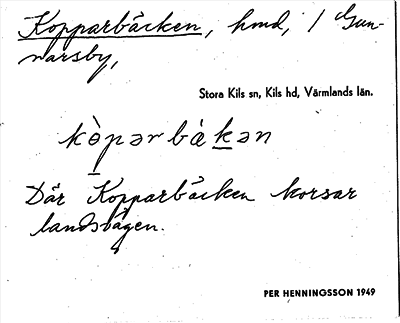 Kopparbäcken, hmd, / Gun-
narsby,
Stora Kils sn, Kils hd, Värmlands län.
kòpərbàkən
Där Kopparbäcken korsar
landsvägen.
PER HENNINGSSON 1949